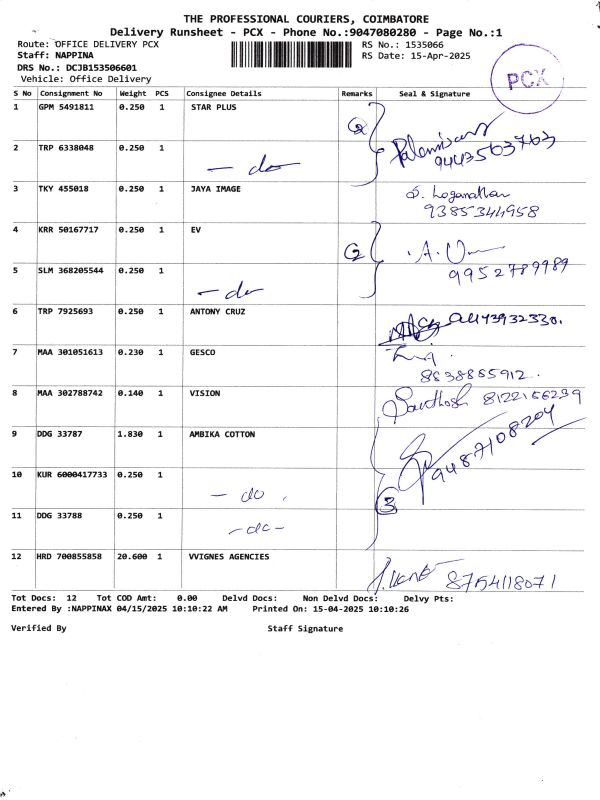 THE PROFESSIONAL COURIERS, COIMBATORE
Delivery Runsheet - PCX - Phone No.:9047080280 - Page No.:1
Route: OFFICE DELIVERY PCX RS No.: 1535066
Staff: NAPPINA RS Date: 15-Apr-2025
DRS No.: DCJB153506601
Vehicle: Office Delivery
PCX
S No Consignment No Weight PCS Consignee Details Remarks Seal & Signature
1 GPM 5491811 0.250 1 STAR PLUS
2 Palanisamy
9443563763
2 TRP 6338048 0.250 1 - do -
3 TKY 455018 0.250 1 JAYA IMAGE S. Loganathan
9385344958
4 KRR 50167717 0.250 1 EV
2 A.
9952789989
5 SLM 368205544 0.250 1 - do -
6 TRP 7925693 0.250 1 ANTONY CRUZ
7 MAA 301051613 0.230 1 GESCO
8838885912.
8 MAA 302788742 0.140 1 VISION Santhosh 8122156239
9 DDG 33787 1.830 1 AMBIKA COTTON
9487108204
10 KUR 6000417733 0.250 1 - do . 3
11 DDG 33788 0.250 1 - do -
12 HRD 700855858 20.600 1 VVIGNES AGENCIES
8754118071
Tot Docs: 12 Tot COD Amt: 0.00 Delvd Docs: Non Delvd Docs: Delvy Pts:
Entered By :NAPPINAX 04/15/2025 10:10:22 AM Printed On: 15-04-2025 10:10:26
Verified By Staff Signature